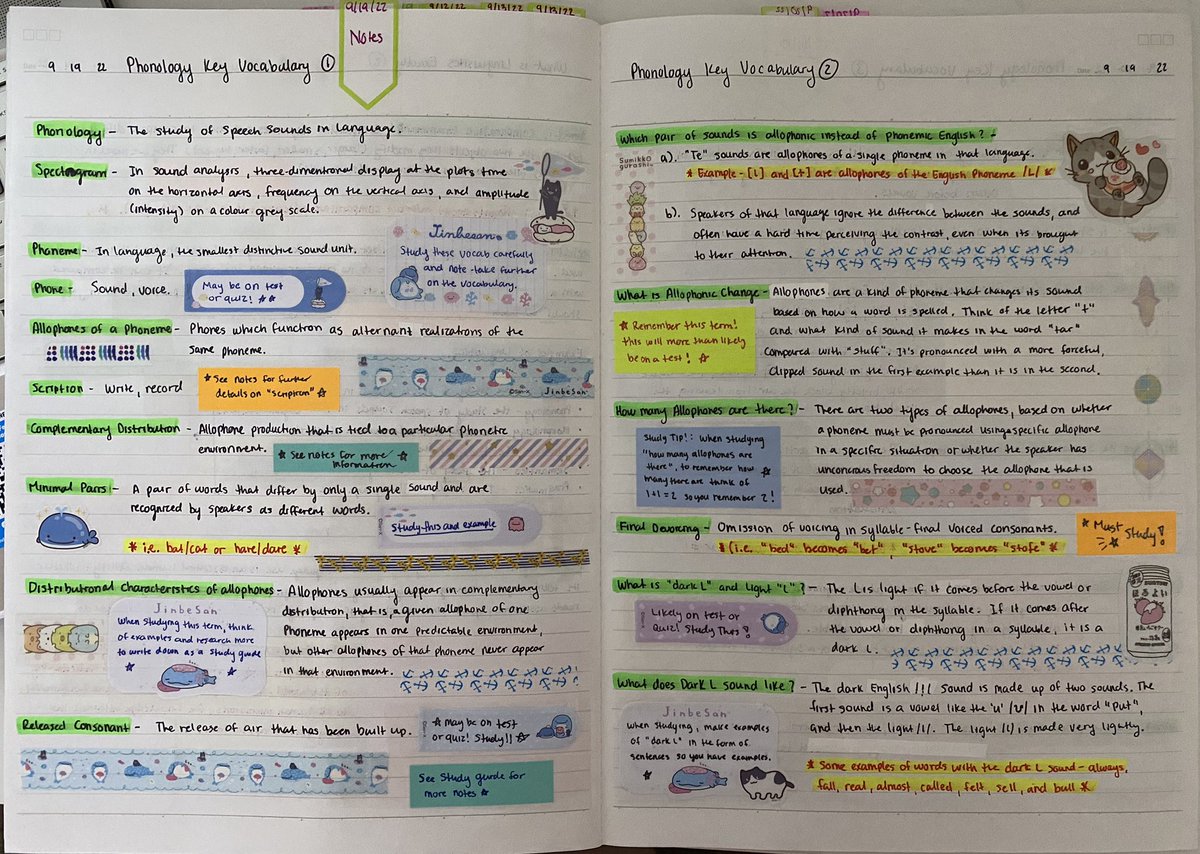 9/19/22
Notes
9/12/22
9/13/22
9/13/22
9 19 22 Phonology Key Vocabulary 1
Phonology - The study of speech sounds in language.
Spectrogram - In sound analysis, three-dimentional display at the plots time
on the horizontal axis, frequency on the vertical axis, and amplitude
(intensity) on a colour grey scale.
Phoneme - In language, the smallest distinctive sound unit.
Jinbesan
Study these vocab carefully
and note-take further
on the vocabulary.
Phone - Sound, voice.
May be on test
or quiz!
Allophones of a Phoneme - Phones which function as alternant realizations of the
same phoneme.
Scription - write, record
See notes for further
details on "scription"
JinbeSan
Complementary Distribution - Allophone production that is tied to a particular phonetic
environment.
See notes for more
information
Minimal Pairs - A pair of words that differ by only a single sound and are
recognized by speakers as different words.
Study this and example
* i.e. bat/cat or hare/dare *
Distributional Characteristics of allophones - Allophones usually appear in complementary
distribution, that is, a given allophone of one
Phoneme appears in one predictable environment,
but other allophones of that phoneme never appear
in that environment.
JinbeSan
When Studying this term, think
of examples and research more
to write down as a study guide
Released Consonant - The release of air that has been built up.
may be on test
or quiz! Study!!
See Study guide for
more notes
Phonology Key Vocabulary 2 9 19 22
Which pair of sounds is allophonic instead of phonemic English? -
Sumikko
gurashi
a). "Te" sounds are allophones of a single phoneme in that language.
* Example - [l] and [t] are allophones of the English Phoneme /L/ *
b). Speakers of that language ignore the difference between the sounds, and
often have a hard time perceiving the contrast, even when its brought
to their attention.
What is Allophonic Change - Allophones are a kind of phoneme that changes its sound
based on how a word is spelled. Think of the letter "t"
and what kind of sound it makes in the word "tar"
compared with "stuff". It's pronounced with a more forceful,
clipped sound in the first example than it is in the second.
Remember this term!
this will more than likely
be on a test!
How many Allophones are there? - There are two types of allophones, based on whether
a phoneme must be pronounced using a specific allophone
in a specific situation or whether the speaker has
unconcious freedom to choose the allophone that is
used.
Study Tip!: When studying
"how many allophones are
there", to remember how
many there are think of
1+1=2 so you remember 2!
Final Devoicing - Omission of voicing in syllable-final voiced consonants.
* (i.e. "bed" becomes "bet", "stove" becomes "stofe" *
Must
Study!
What is "dark L" and light "L"? - The L is light if it comes before the vowel or
diphthong in the syllable. If it comes after
the vowel or diphthong in a syllable, it is a
dark L.
Likely on test or
Quiz! Study This!
ほろよい
What does Dark L sound like? - The dark English /l/ sound is made up of two sounds. The
first sound is a vowel like the 'u' /ʊ/ in the word "put",
and then the light /l/. The light /l/ is made very lightly.
JinbeSan
When studying, make examples
of "dark L" in the form of
sentences so you have examples.
* Some examples of words with the dark L sound - always,
fall, real, almost, called, felt, sell, and bull *